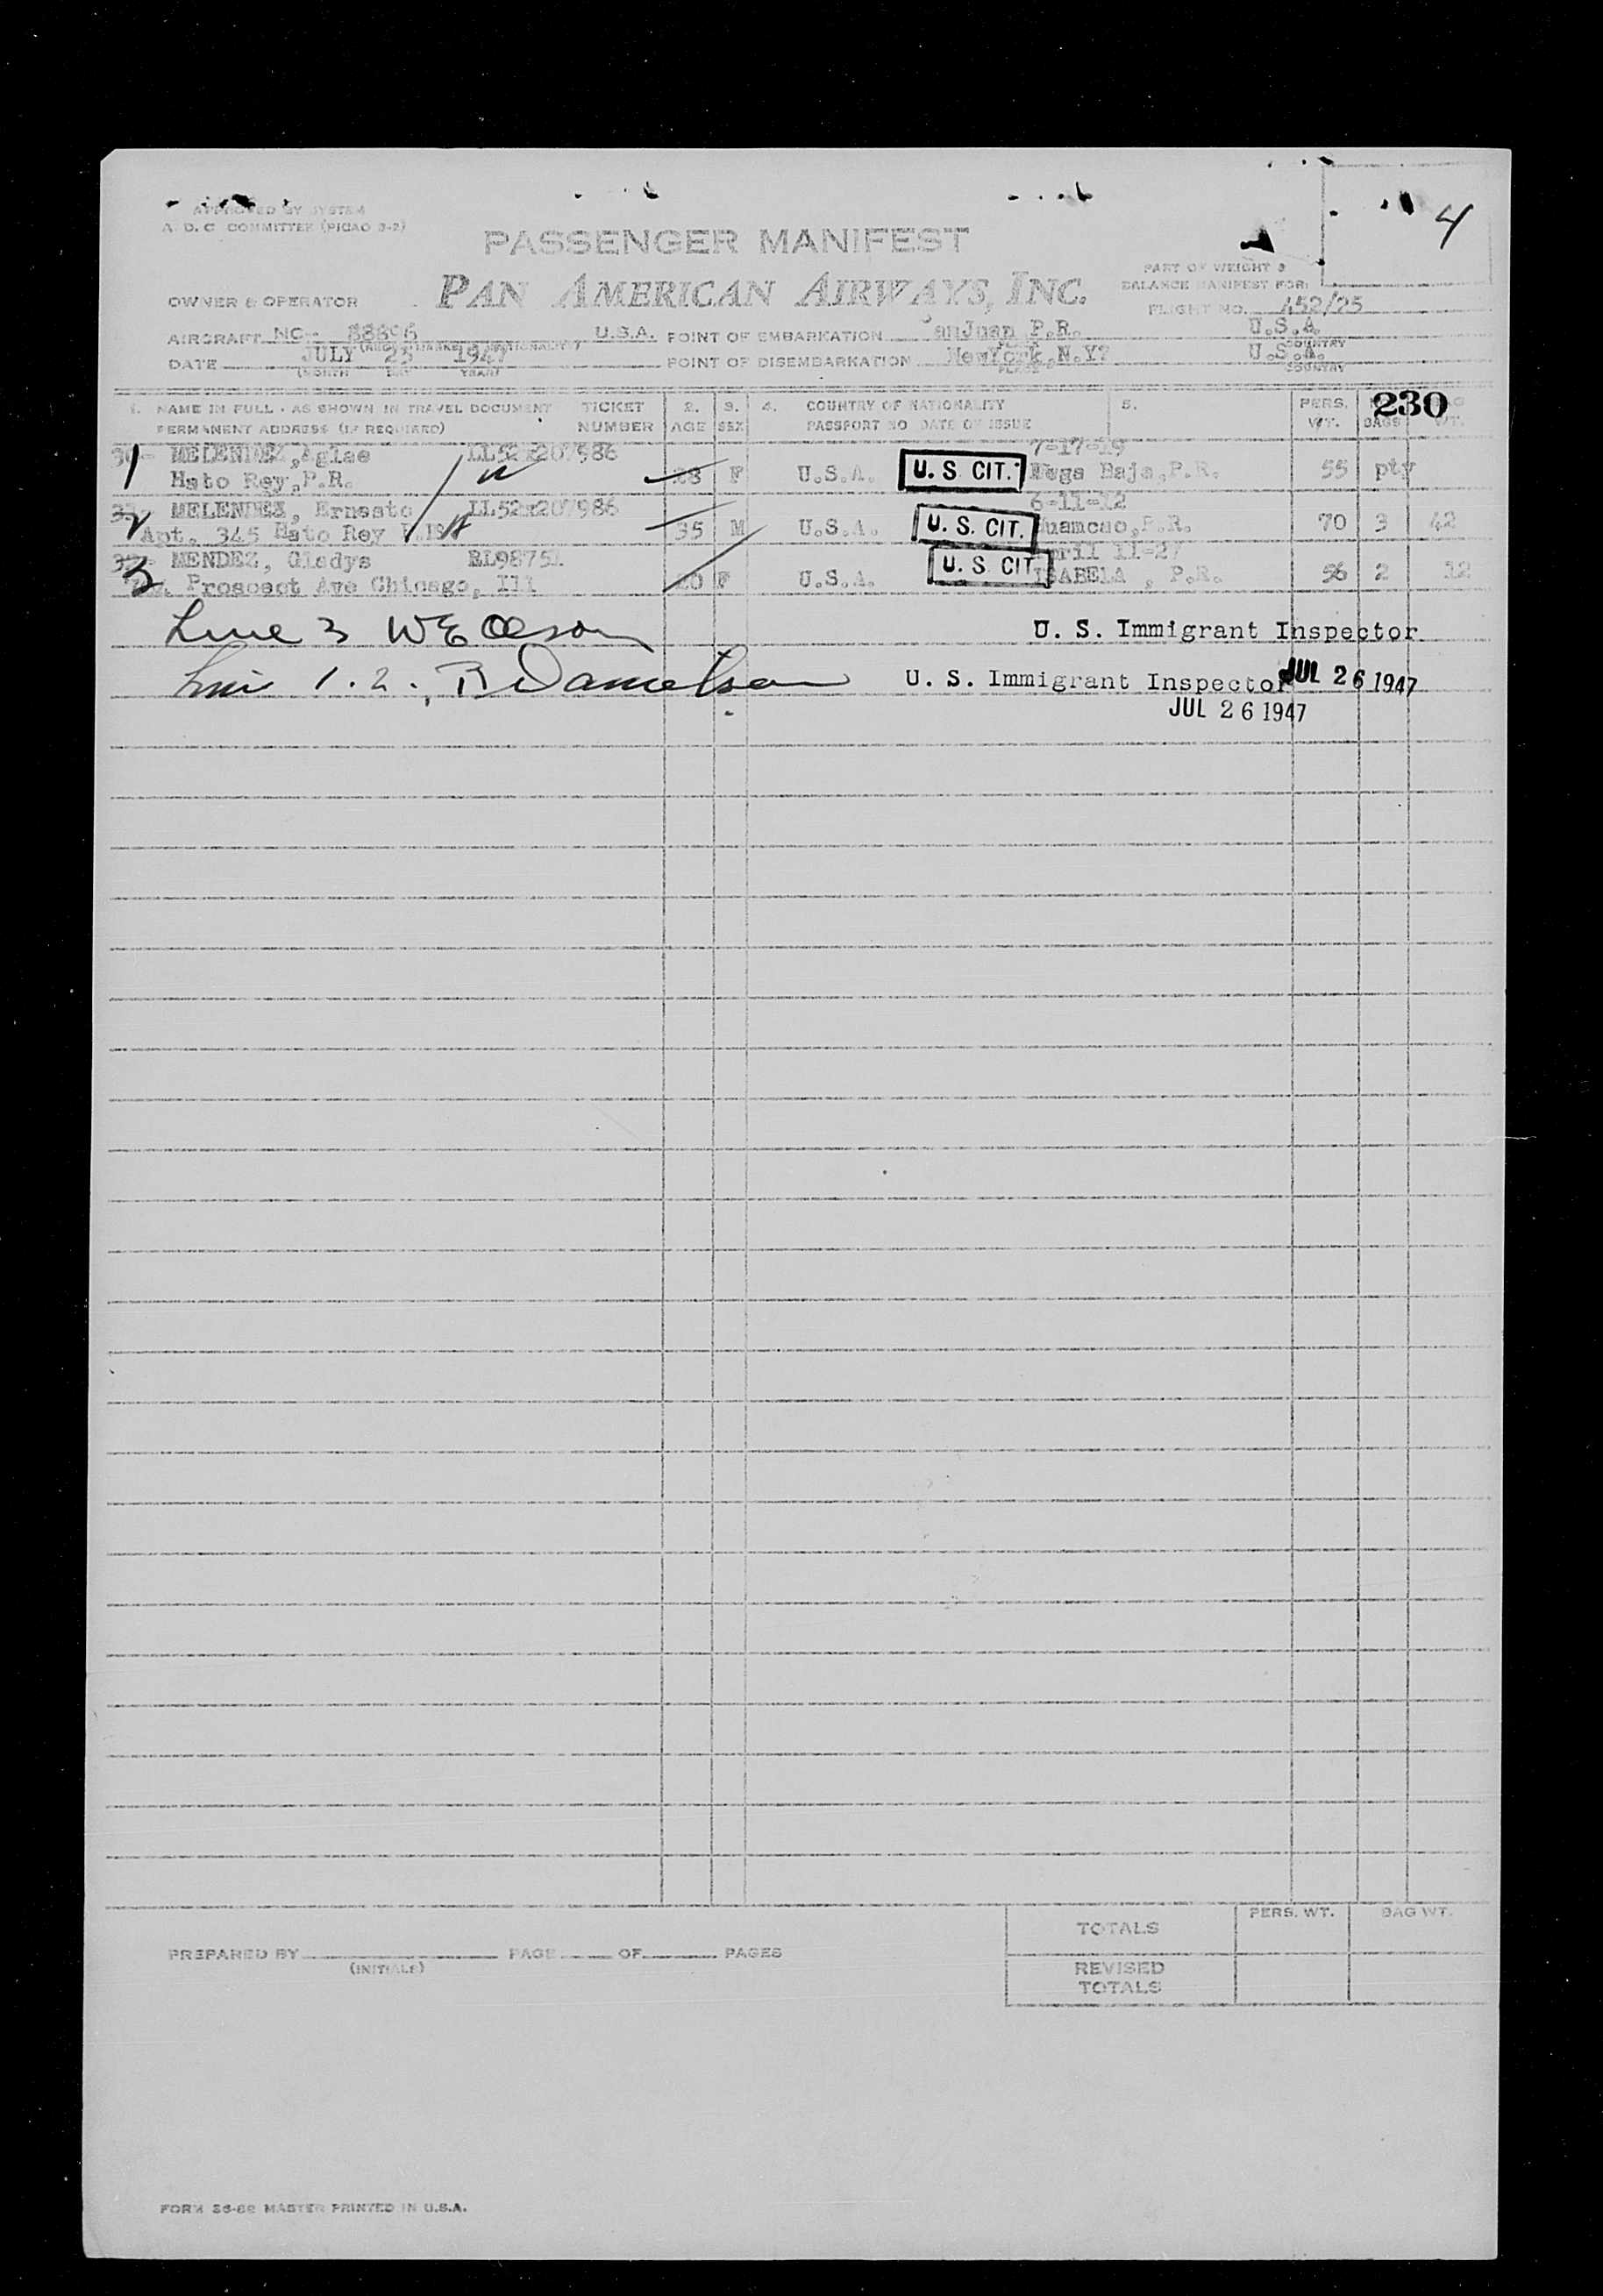 APPROVED BY SYSTEM
A. D. C. COMMITTEE (PICAO 3-2)
4
PASSENGER MANIFEST
PART OF WEIGHT &
BALANCE MANIFEST FOR:
OWNER & OPERATOR PAN AMERICAN AIRWAYS, INC.
FLIGHT NO. 452/25
AIRCRAFT NC- U.S.A. POINT OF EMBARKATION SanJuan P.R. U.S.A.
COUNTRY
DATE JULY 25 1947 POINT OF DISEMBARKATION NewYork,N.Y? U.S.A.
(MONTH DAY YEAR) PLACE COUNTRY
1. NAME IN FULL - AS SHOWN IN TRAVEL DOCUMENT TICKET 2. 3. 4. COUNTRY OF NATIONALITY 5. PERS. 230
PERMANENT ADDRESS (IF REQUIRED) NUMBER AGE SEX PASSPORT NO DATE OF ISSUE WT. BAGS WT.
1 MELENDEZ,Aglae 7-17-19
Hato Rey,P.R. 28 F U.S.A. U. S. CIT. Vega Baja,P.R. 55 pty
2 MELENDEZ, Ernesto 6-11-12
Apt. 345 Hato Rey 35 M U.S.A. U. S. CIT. Huamcao,P.R. 70 3 42
3 MENDEZ, Gladys RL98751 April 11-27
Prospect Ave Chicago, Ill 20 F U.S.A. U. S. CIT. ISABELA , P.R. 56 2 12
Line 3 W E Olson U. S. Immigrant Inspector
Line 1. 2. B Danielson U. S. Immigrant Inspector JUL 26 1947
JUL 26 1947
TOTALS PERS. WT. BAG WT.
PREPARED BY PAGE OF PAGES
(INITIALS)
REVISED
TOTALS
FORM 36-82 MASTER PRINTED IN U.S.A.